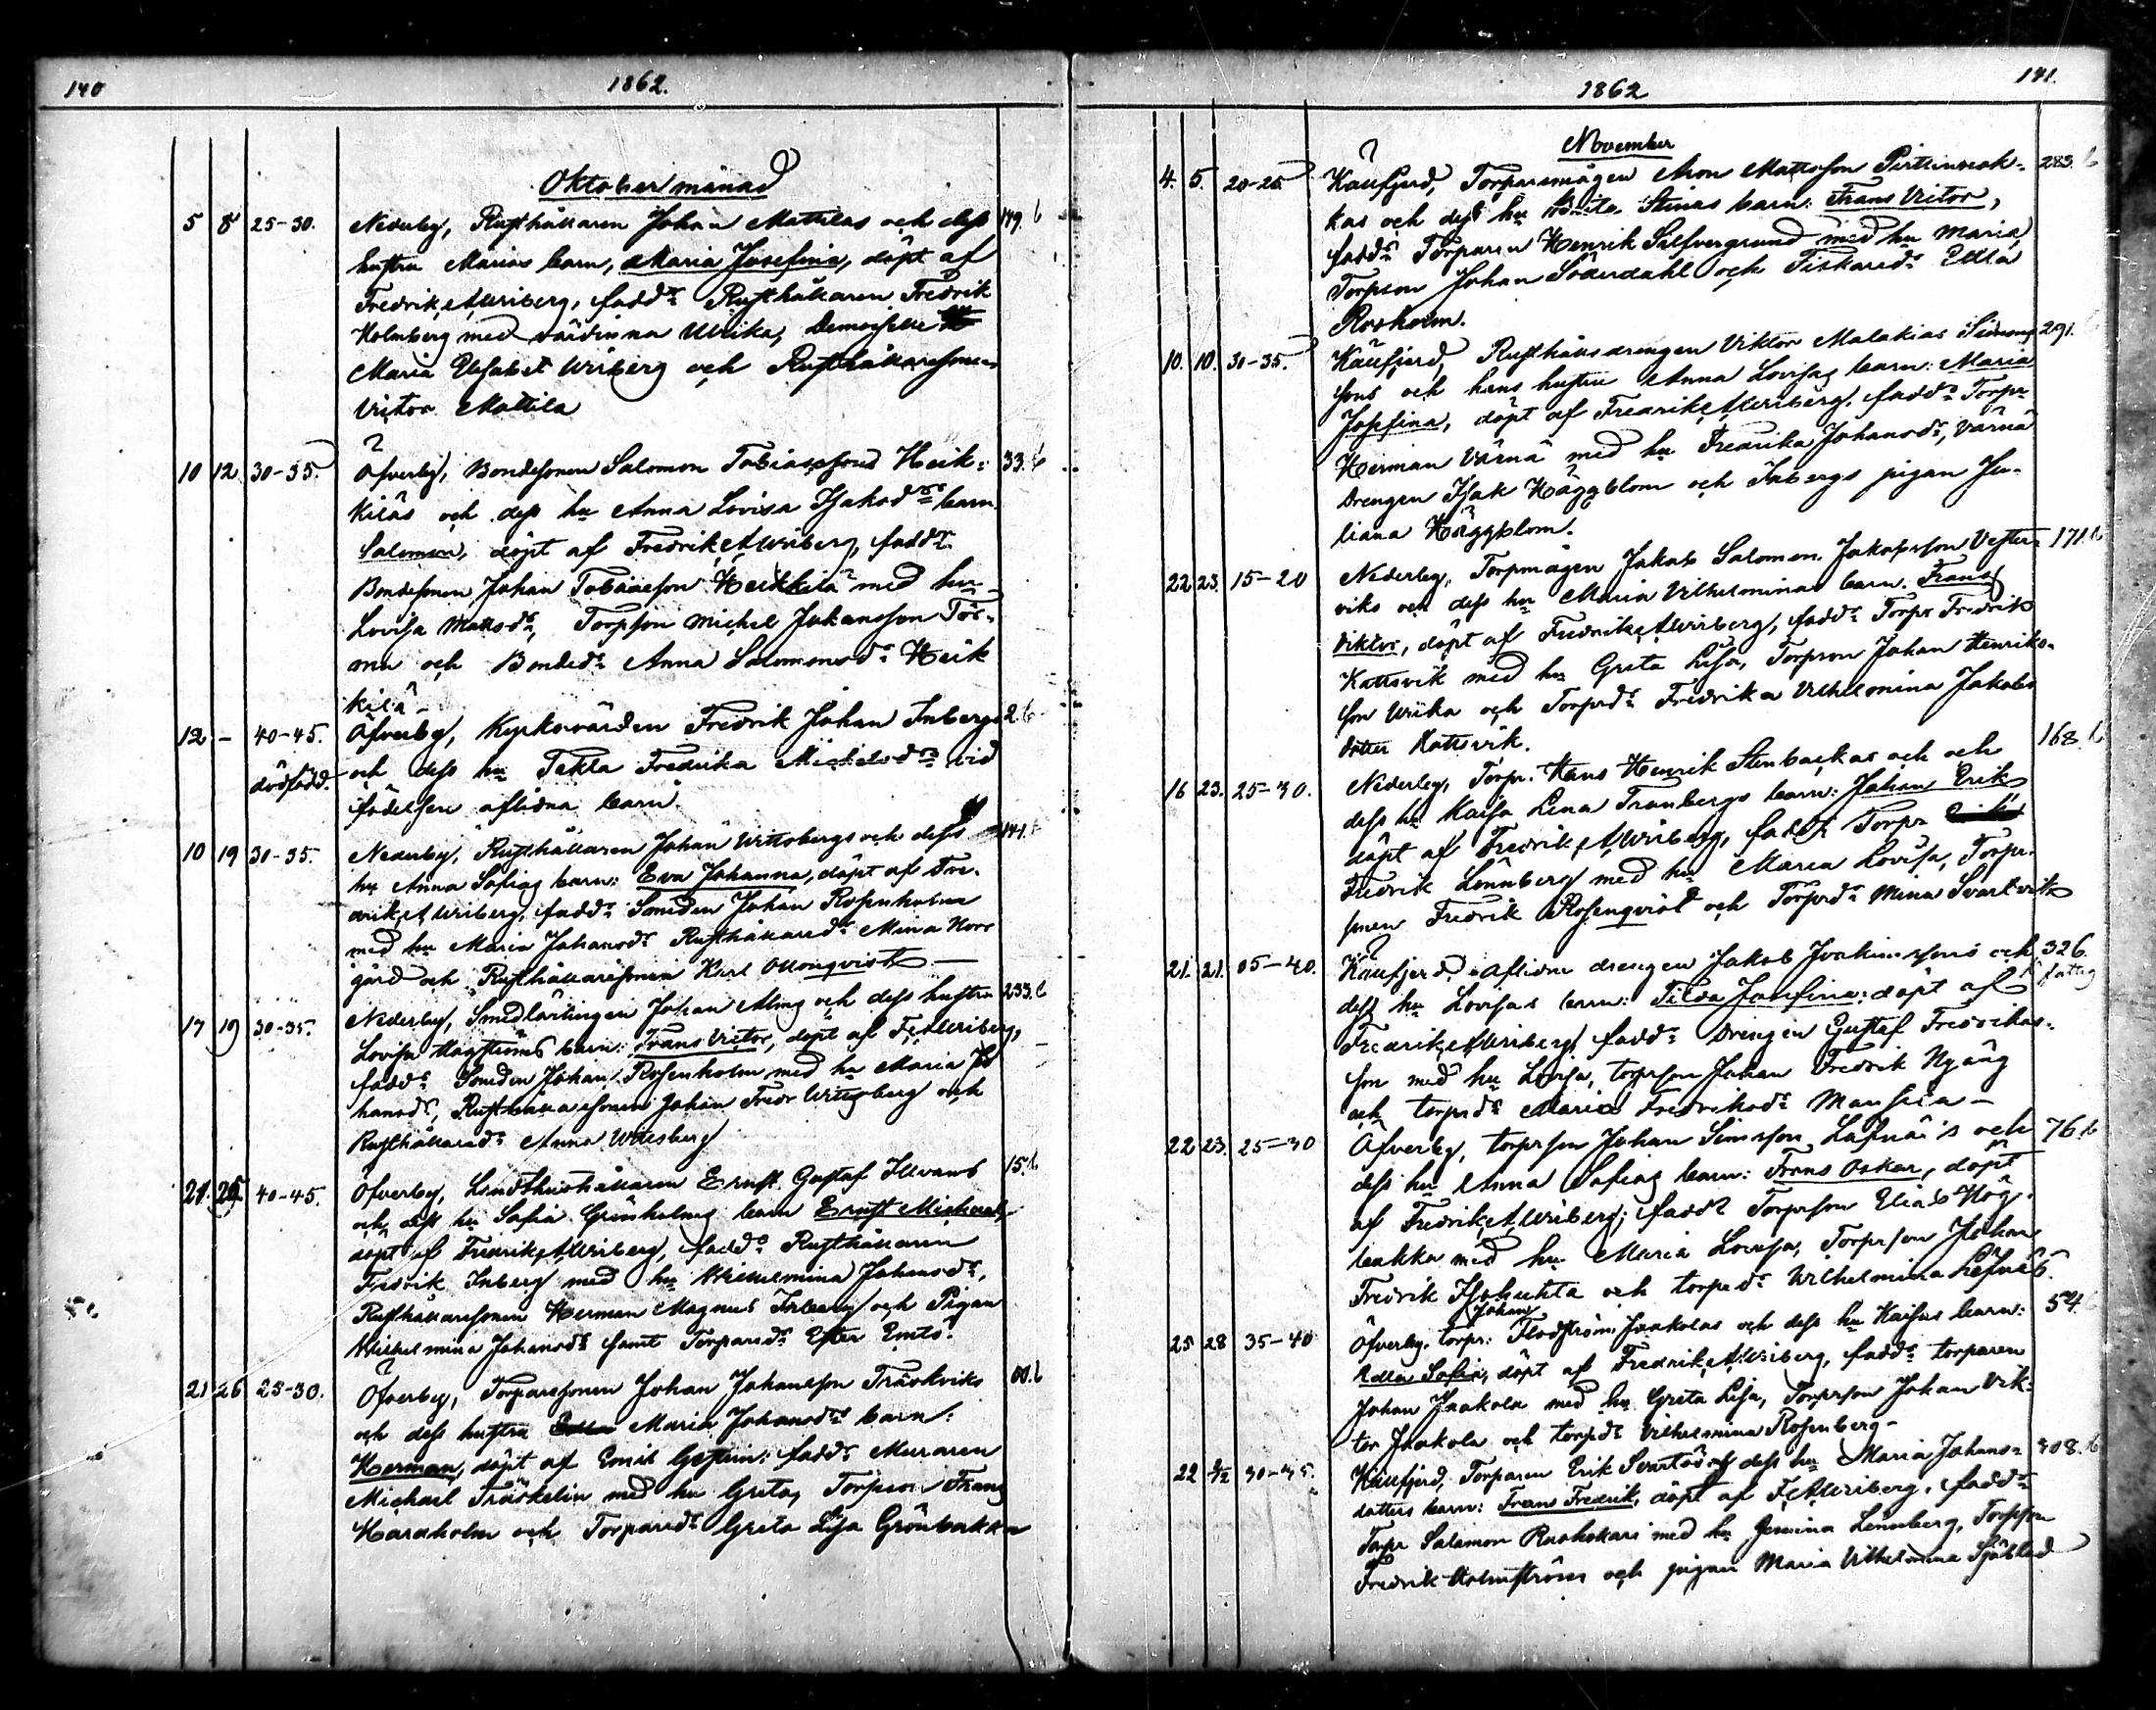 140
1862.
Oktober månad
5 8 25-30. Nederby, Rusthållaren Johan Mattilas och dess 149. b
hustru Marias barn, Maria Josefina, döpt af
Fredrik A Wriberg, faddr Rusthållaren Fredrik
Holmberg med värdinna Ulrika, Demoiselle
Maria Elisabet Wriberg och Rusthållaresonen
Victor Mattila
10 12 30-35. Öfverby, Bondesonen Salomon Tobiassons Heik= 33. b
kiläs och dess hu Anna Lovisa Isaksdrs barn
Salomon, döpt af Fredrik A Wriberg, faddr
Bondesonen Johan Tobiasson Heikkilä med hu
Lovisa Mattsdr, Torpson Michel Johansson Tör=
mä och Bondedr Anna Salomonsdr Heik
kilä -
12 - 40-45. Öfverby, Kyrkovärden Fredrik Johan Inbergs 2 b
dödfödd. och dess hu Tekla Fredrika Mickelsdrs vid
födelsen aflidna barn.
10 19 30-35. Nederby, Rusthållaren Johan Wittsbergs och dess 141. b
hu Anna Sofias barn: Eva Johanna, döpt af Fre-
drik A Wriberg, faddr Smeden Johan Rosenholm
med hu Maria Johansdr Rusthållaredr Mina Norr
gård och Rusthållaresonen Karl Ollonqvist —
17 19 30-35. Nederby, Smedlärlingen Johan Alms och dess hustru 233. b
Lovisa Hagströms barn: Frans Victor, döpt af F. A Wriberg,
faddr Smeden Johan Rosenholm med hu Maria Jo
hansdr, Rusthållaresonen Johan Fredr Wittsberg och
Rusthållaredr Anna Wittsberg
21. 26. 40-45. Öfverby, Landthushållaren Ernst Gustaf Idmans 15. b
och dess hu Sofia Grönholms barn Ernst Michael,
döpt af Fredrik A Wriberg, faddr Rusthållaren
Fredrik Inberg med hu Wilhelmina Johansdr,
Rusthållaresonen Herman Magnus Inberg och Pigan
Wilhelmina Johansdr samt Torparedr Ester Emts.
21 26 25-30. Öfverby, Torparesonen Johan Johansson Träskviks 60. b
och dess hustru Maria Johansdrs barn:
Herman, döpt af Emil Gestrin: faddr Muraren
Michael Träskelin med hu Greta, Torpson Frans
Haraholm och Torparedr Greta Lisa Grönbacka
141.
1862
November
4. 5. 20-25 Käufjerd, Torparemågen Aron Mattsson Pirttinseak= 283. b
kas och dess hu Brita Stinas barn: Frans Victor,
faddr Torparen Henrik Silfvergrund med hu Maria,
Torpson Johan Söderdahl och Fiskaredr Edla
Rosholm.
10. 10. 30-35. Käufjerd, Rusthållsdrengen Viktor Malakias Simons 291.
sons och hans hustru Anna Lovisas barn: Maria
Josefina, döpt af Fredrik A Wriberg. faddr Torpr
Herman Värnä med hu Fredrika Johansdr, Värnä
Drengen Isak Häggblom och Inbergs pigan Ju-
liana Häggblom.
22 23. 15-20 Nederby, Torpmågen Jakob Salomon Jakobsson Vester= 171. b
viks och dess hu Maria Vilhelminas barn. Frans
Viktor, döpt af Fredrik A Wriberg, faddr Torpr Fredrik
Kattsvik med hu Greta Lisa, Torpson Johan Henriks-
son Wiika och Torpdr Fredrika Vilhelmina Jakobs
dotter Kattsvik.
16 23. 25-30. Nederby, Torpr. Hans Henrik Stenbackas och och 168. b
dess hu Kaisa Lena Tranbergs barn: Johan Erik
döpt af Fredrik A Wriberg, faddr Torpr
Fredrik Lönnberg med hu Maria Lovisa, Torpr.
sonen Fredrik Rosenqvist och Torprdr Mina Svartvik
21. 21. 35-40. Käufjerd, Aflidne drengen Jakob Joakimssons och 326.
fattig
dess hu Lovisas barn: Tilda Josefina: döpt af
Fredrik A Wriberg faddr Drengen Gustaf Fredriks=
son med hu Lovisa, torpson Johan Fredrik Nyäng
och torprdr Maria Fredriksdr Mansila -
22 23. 25-30 Öfverby, torprson Johan Simsson Lafnäis och 76. b
dess hu Anna Sofias barn: Frans Oskar, döpt
af Fredrik A Wriberg; faddr Torprson Elias Hög-
backa med hu Maria Lovisa, Torprson Johan
Fredrik Isohuhta och torprdr Wilhelmina Löfnäs.
25 28 35-40 Öfverby, torpr: Johan Flodström Jaakolas och dess hu Kaisas barn: 54. b
Edla Sofia, döpt af Fredrik A. Wriberg, faddr torparen
Johan Jaakola med hu Greta Lisa, Torprson Johan Vik=
tor Jaakola och torprdr Vilhelmina Rosenberg -
22 2/12 30-35. Käufjerd, Torparen Erik Svartås och dess hu Maria Johans= 308. b
dotters barn: Frans Fredrik, döpt af F. A Wriberg. faddr
Torpr Salomon Ruohokari med hu Gemina Lönnberg, Torpson
Fredrik Holmström och pigan Maria Vilhelmina Sjöblad